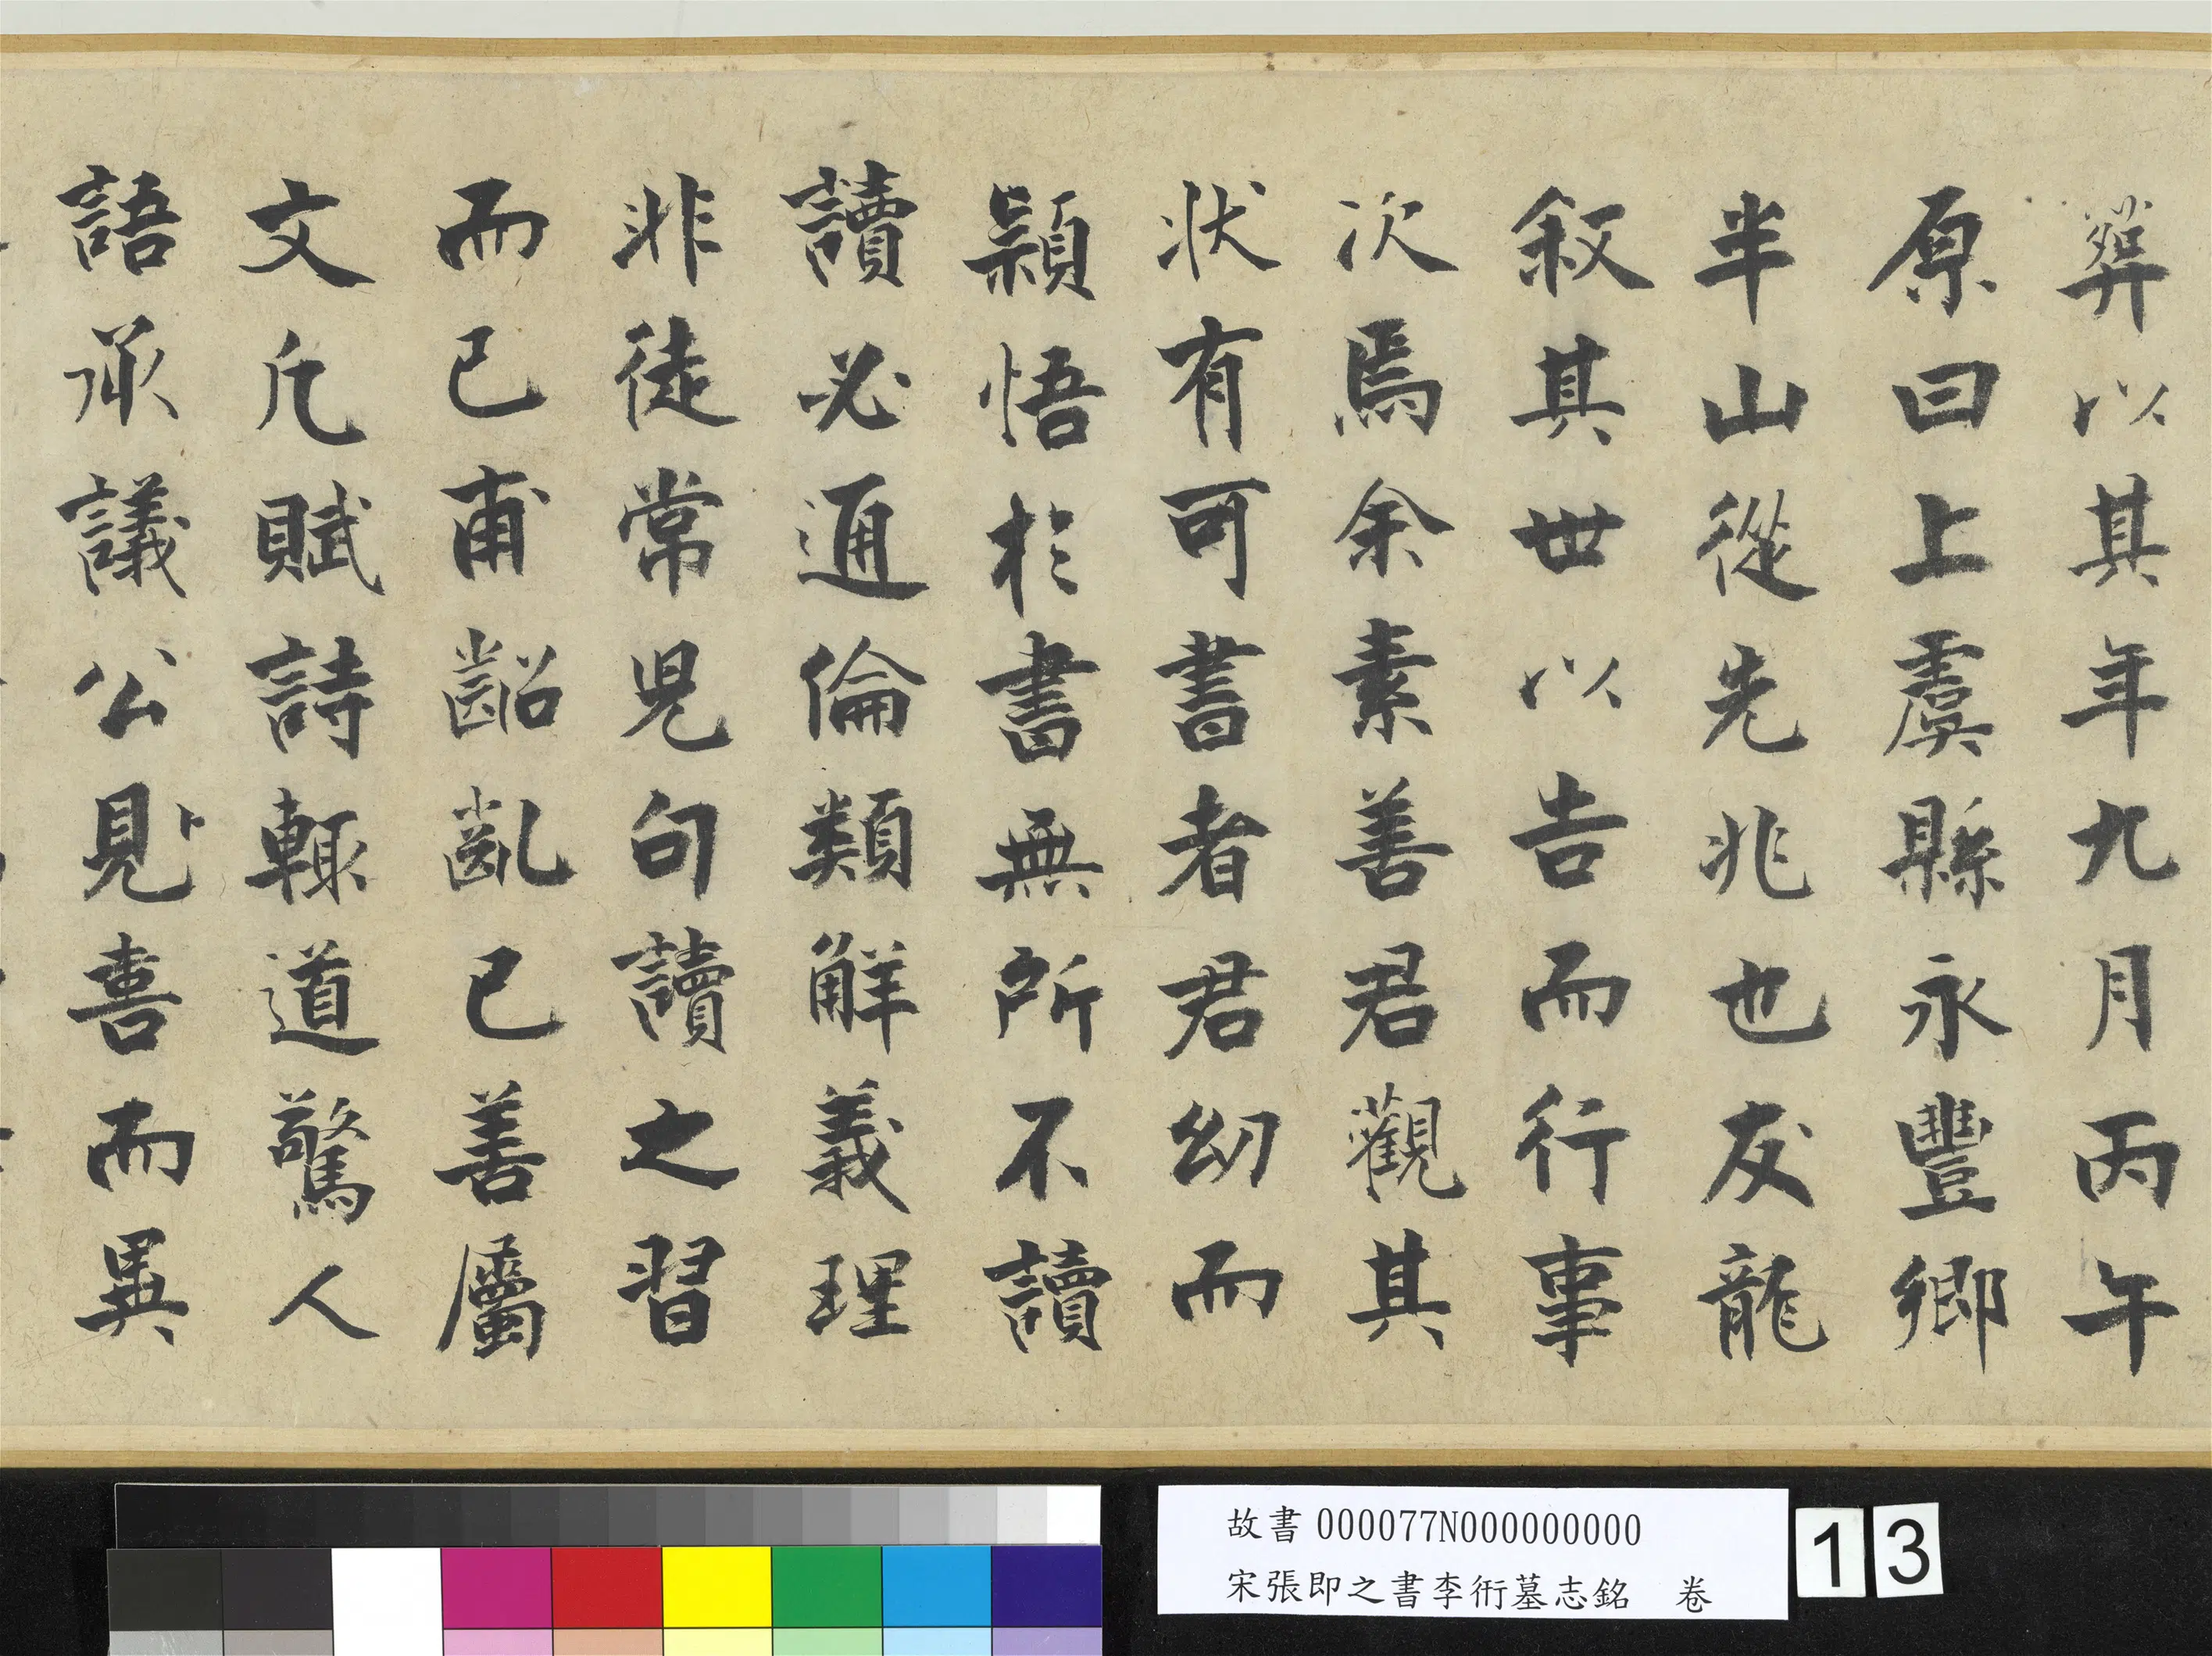 葬以其年九月丙午
原曰上虞縣永豐鄉
半山從先兆也友龍
叙其世以告而行事
次焉余素善君觀其
狀有可書者君幼而
穎悟於書無所不讀
讀必通倫類解義理
非徒常兒句讀之習
而已甫齠齔已善屬
文凡賦詩輒道驚人
語承議公見喜而異
故書 000077N000000000
宋張即之書李衎墓志銘 卷
13